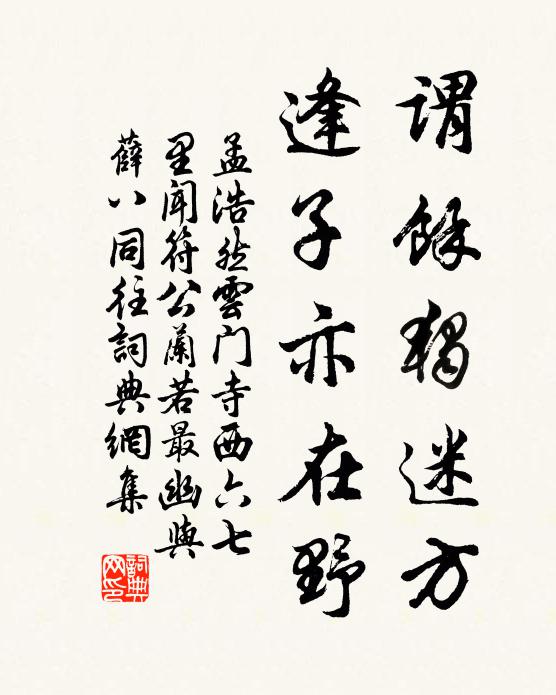 謂餘獨迷方
逢子亦在野
孟浩然雲门寺西六七
里聞符公蘭若最幽與
薛八同往詞典網集
詞典
网印